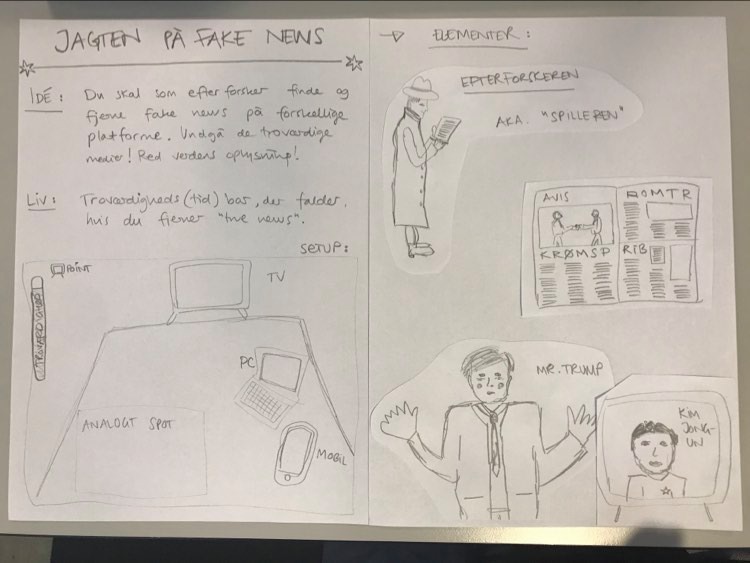 JAGTEN PÅ FAKE NEWS
IDÉ: Du skal som efterforsker finde og
fjerne fake news på forskellige
platforme. Undgå de troværdige
medier! Red verdens oplysning!
LIV: Troværdigheds(tid) bar, der falder,
hvis du fjerner "true news".
SETUP:
POINT
TROVÆRDIGHED
TV
PC
ANALOGT SPOT
MOBIL
→ ELEMENTER:
EFTERFORSKEREN
AKA. "SPILLEREN"
AVIS
KRØMSP
ROMTR
RTB
MR. TRUMP
KIM
JONG-
UN